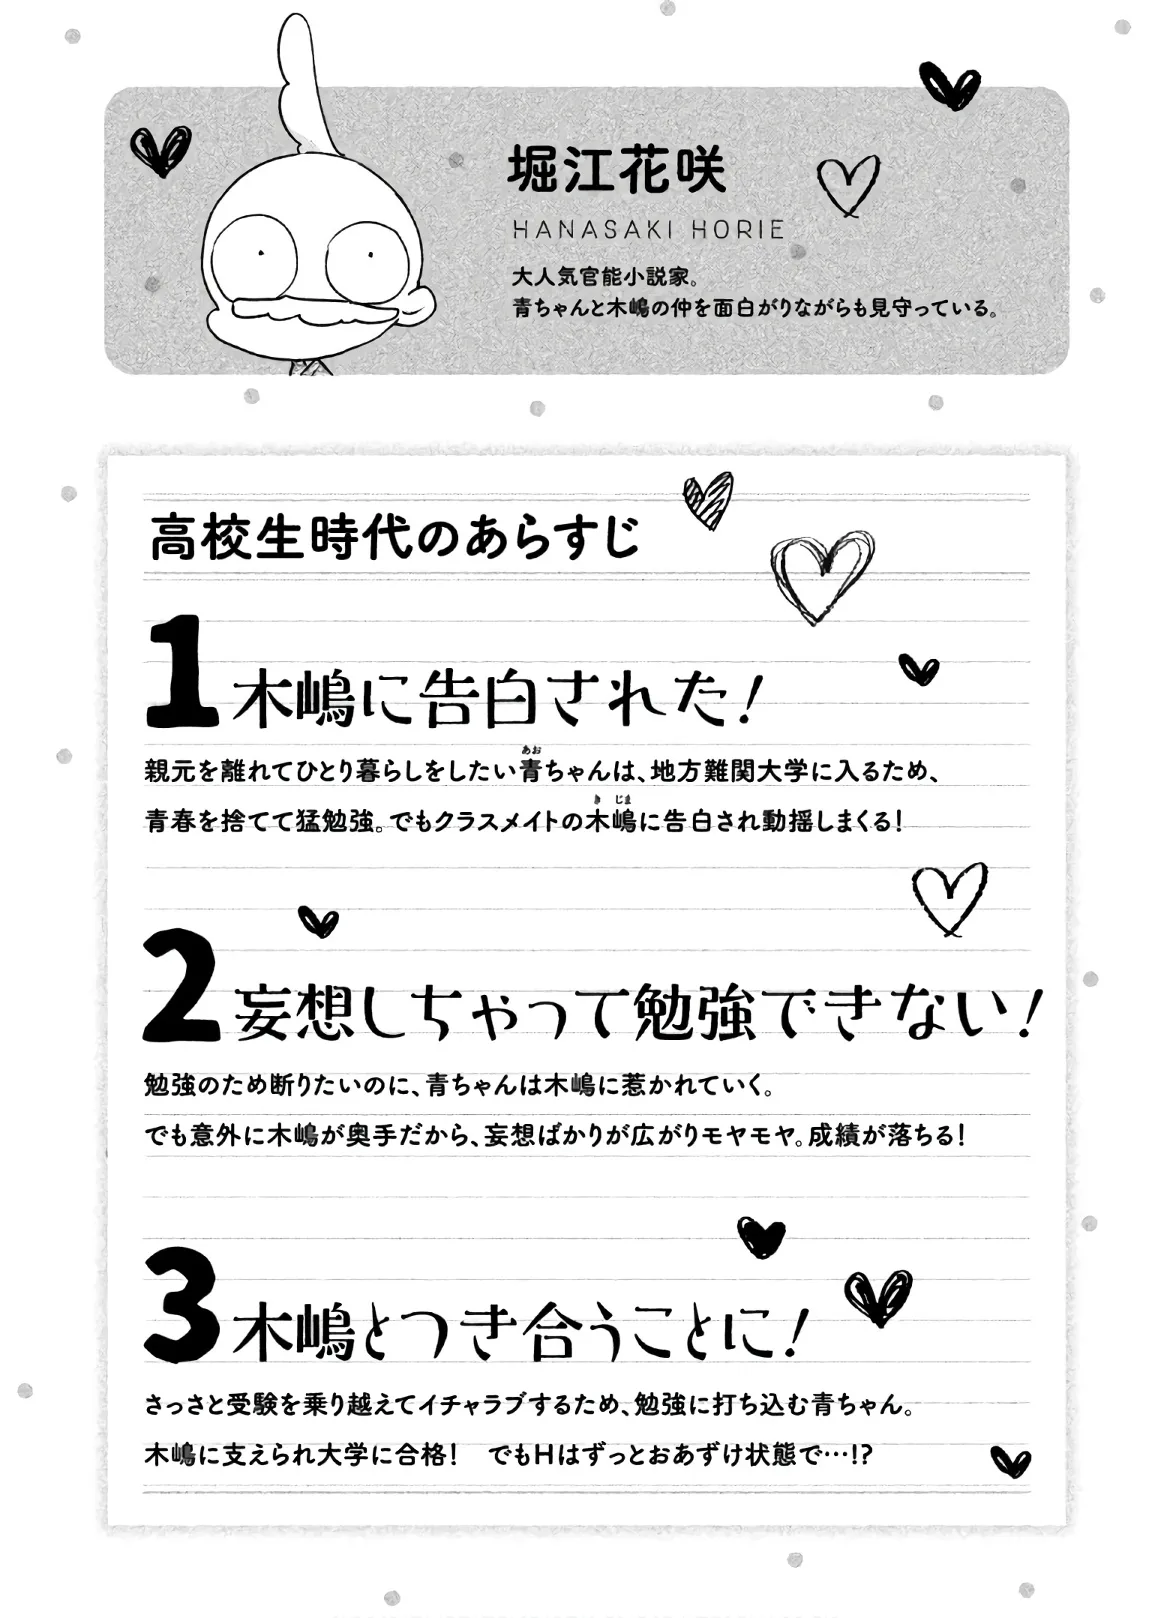 堀江花咲
HANASAKI HORIE
大人気官能小説家。
青ちゃんと木嶋の仲を面白がりながらも見守っている。
高校生時代のあらすじ
1 木嶋に告白された!
親元を離れてひとり暮らしをしたい青ちゃんは、地方難関大学に入るため、
あお
青春を捨てて猛勉強。でもクラスメイトの木嶋に告白され動揺しまくる!
き じま
2 妄想しちゃって勉強できない!
勉強のため断りたいのに、青ちゃんは木嶋に惹かれていく。
でも意外に木嶋が奥手だから、妄想ばかりが広がりモヤモヤ。成績が落ちる!
3 木嶋とつき合うことに!
さっさと受験を乗り越えてイチャラブするため、勉強に打ち込む青ちゃん。
木嶋に支えられ大学に合格! でもHはずっとおあずけ状態で…!?